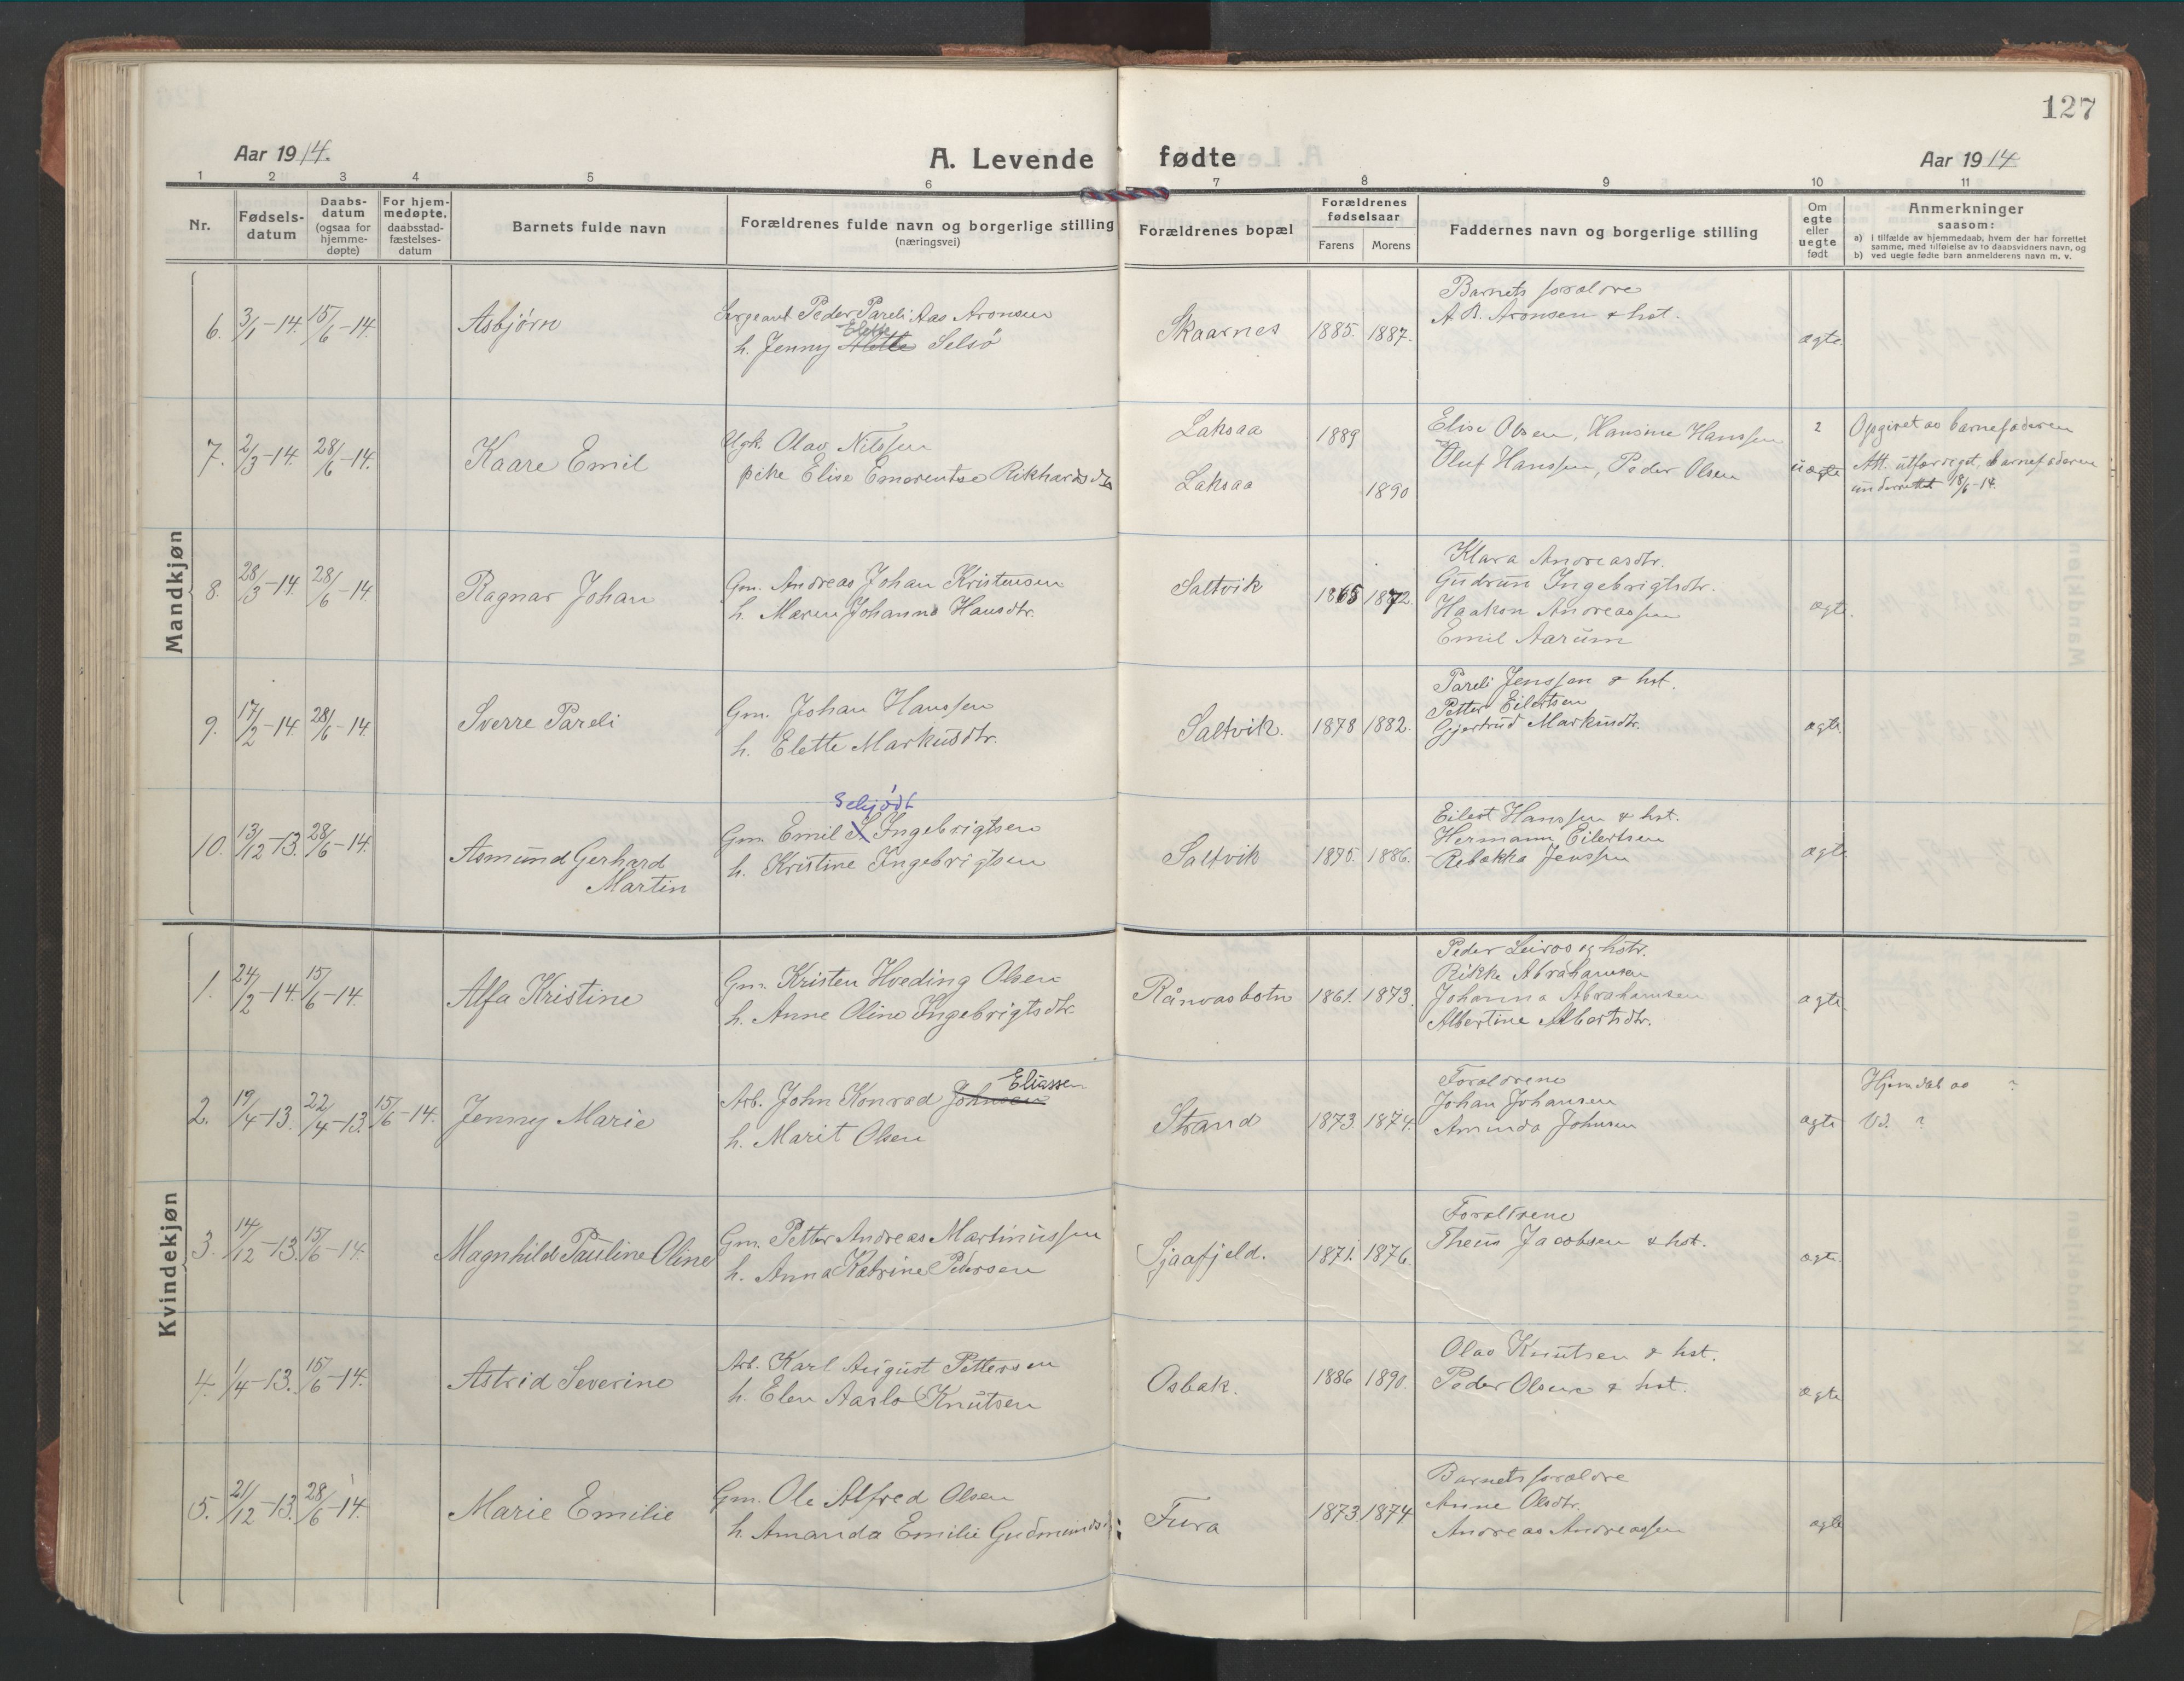 127
Aar 1914.
A. Levende fødte
Aar 1914
1 2 3 4 5 6 7 8 9 10 11
Nr.
Fødsels-
datum
Daabs-
datum
(ogsaa for
hjemme-
døpte)
For hjem-
medøpte,
daabsstad-
fæstelses-
datum
Barnets fulde navn
Forældrenes fulde navn og borgerlige stilling
(næringsvei)
Forældrenes bopæl
Forældrenes
fødselsaar
Farens Morens
Faddernes navn og borgerlige stilling
Om
egte
eller
uegte
født
Anmerkninger
saasom:
a) i tilfælde av hjemmedaab, hvem der har forrettet
samme, med tilføielse av to daabsvidners navn, og
b) ved uegte fødte barn anmelderens navn m. v.
Mandkjøn
6. 3/1-14. 15/6-14. Asbjørn
Sergeant Peder Pareli Aas Aronsen
Elette
h. Jenny Alette Selsø
Skaarnes 1885. 1887.
Barnets forældre
A. B. Aronsen & hst.
ægte.
7. 2/3-14. 28/6-14. Kaare Emil
Ugk. Olav Nilssen
pike Elise Emerentse Rikhardsdtr
Laksaa 1889
Laksaa 1890
Elise Olsen, Hansine Hanssen
Oluf Hanssen, Peder Olsen
2
uægte
Opgivet av barnefaderen
Att. utfærdiget, barnefaderen
underrettet 18/6-14.
8. 28/3-14. 28/6-14. Ragnar Johan
Gm. Andreas Johan Kristensen
h. Maren Johanna Hansdtr.
Saltvik 1865 1872.
Klara Andreasdtr.
Gudrun Ingebrigtsdtr.
Haakon Andreassen
Emil Aarum
ægte.
9. 17/2-14 28/6-14 Sverre Pareli
Gm. Johan Hanssen
h. Elette Markusdtr.
Saltvik. 1878 1882.
Pareli Jenssen & hst.
Petter Eilertsen
Gjertrud Markusdtr.
ægte.
10. 13/12-13. 28/6-14. Asmund Gerhard
Martin
Schjødt
Gm. Emil S Ingebrigtsen
h. Kristine Ingebrigtsen
Saltvik 1875. 1886.
Eilert Hanssen & hst.
Hermann Eilertsen
Rebekka Jenssen
ægte
Kvindekjøn
1. 24/2-14. 15/6-14. Alfa Kristine
Gm. Kristen Hveding Olsen
h. Anne Oline Ingebrigtsdtr.
Rånvasbotn 1861. 1873.
Peder Leiros og hstr.
Rikke Abrahamsen
Johanna Abrahamsen
Albertine Albertsdtr.
ægte
2. 19/4-13. 22/4-13. 15/6-14. Jenny Marie
Eliassen
Arb. John Konrad Johnsen
h. Marit Olsen
Strand 1873. 1874.
Forældrene
Johan Johansen
Aminda Johnsen
ægte
Hjemdøb av ?
Vd. ?
3. 14/12-13. 15/6-14. Magnhild Pauline Oline
Gm. Petter Andreas Martinussen
h. Anna Katrine Pedersen
Sjaafjeld. 1871. 1876.
Forældrene
Theus Jacobsen & hst.
ægte.
4. 1/4-13. 15/6-14. Astrid Severine
Arb. Karl August Pettersen
h. Elen Aaslo Knutsen
Osbak. 1886 1890.
Olav Knutsen & hst.
Peder Olsen & hst.
ægte
5. 21/12-13. 28/6-14. Marie Emilie
Gm. Ole Alfred Olsen
h. Amanda Emilie Gudmundsd.
Fura 1873. 1874
Barnets forældre
Anne Olsdtr.
Andreas Andreassen
ægte